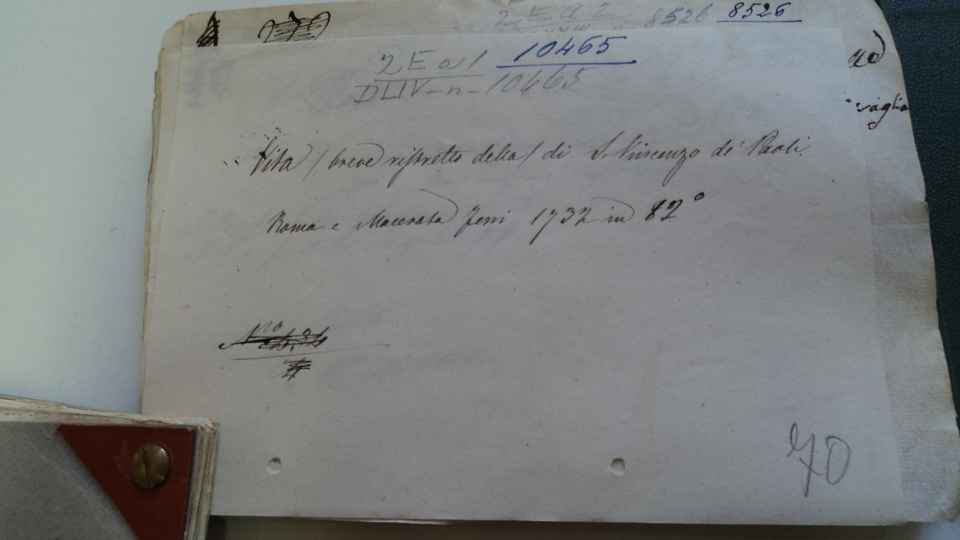 8526 8526
2 E a 1 10465
DLIV-n-10465
Vita (breve ristretto della) di S. Vincenzo de' Paoli.
Roma e Macerata 1732 in 12°
70